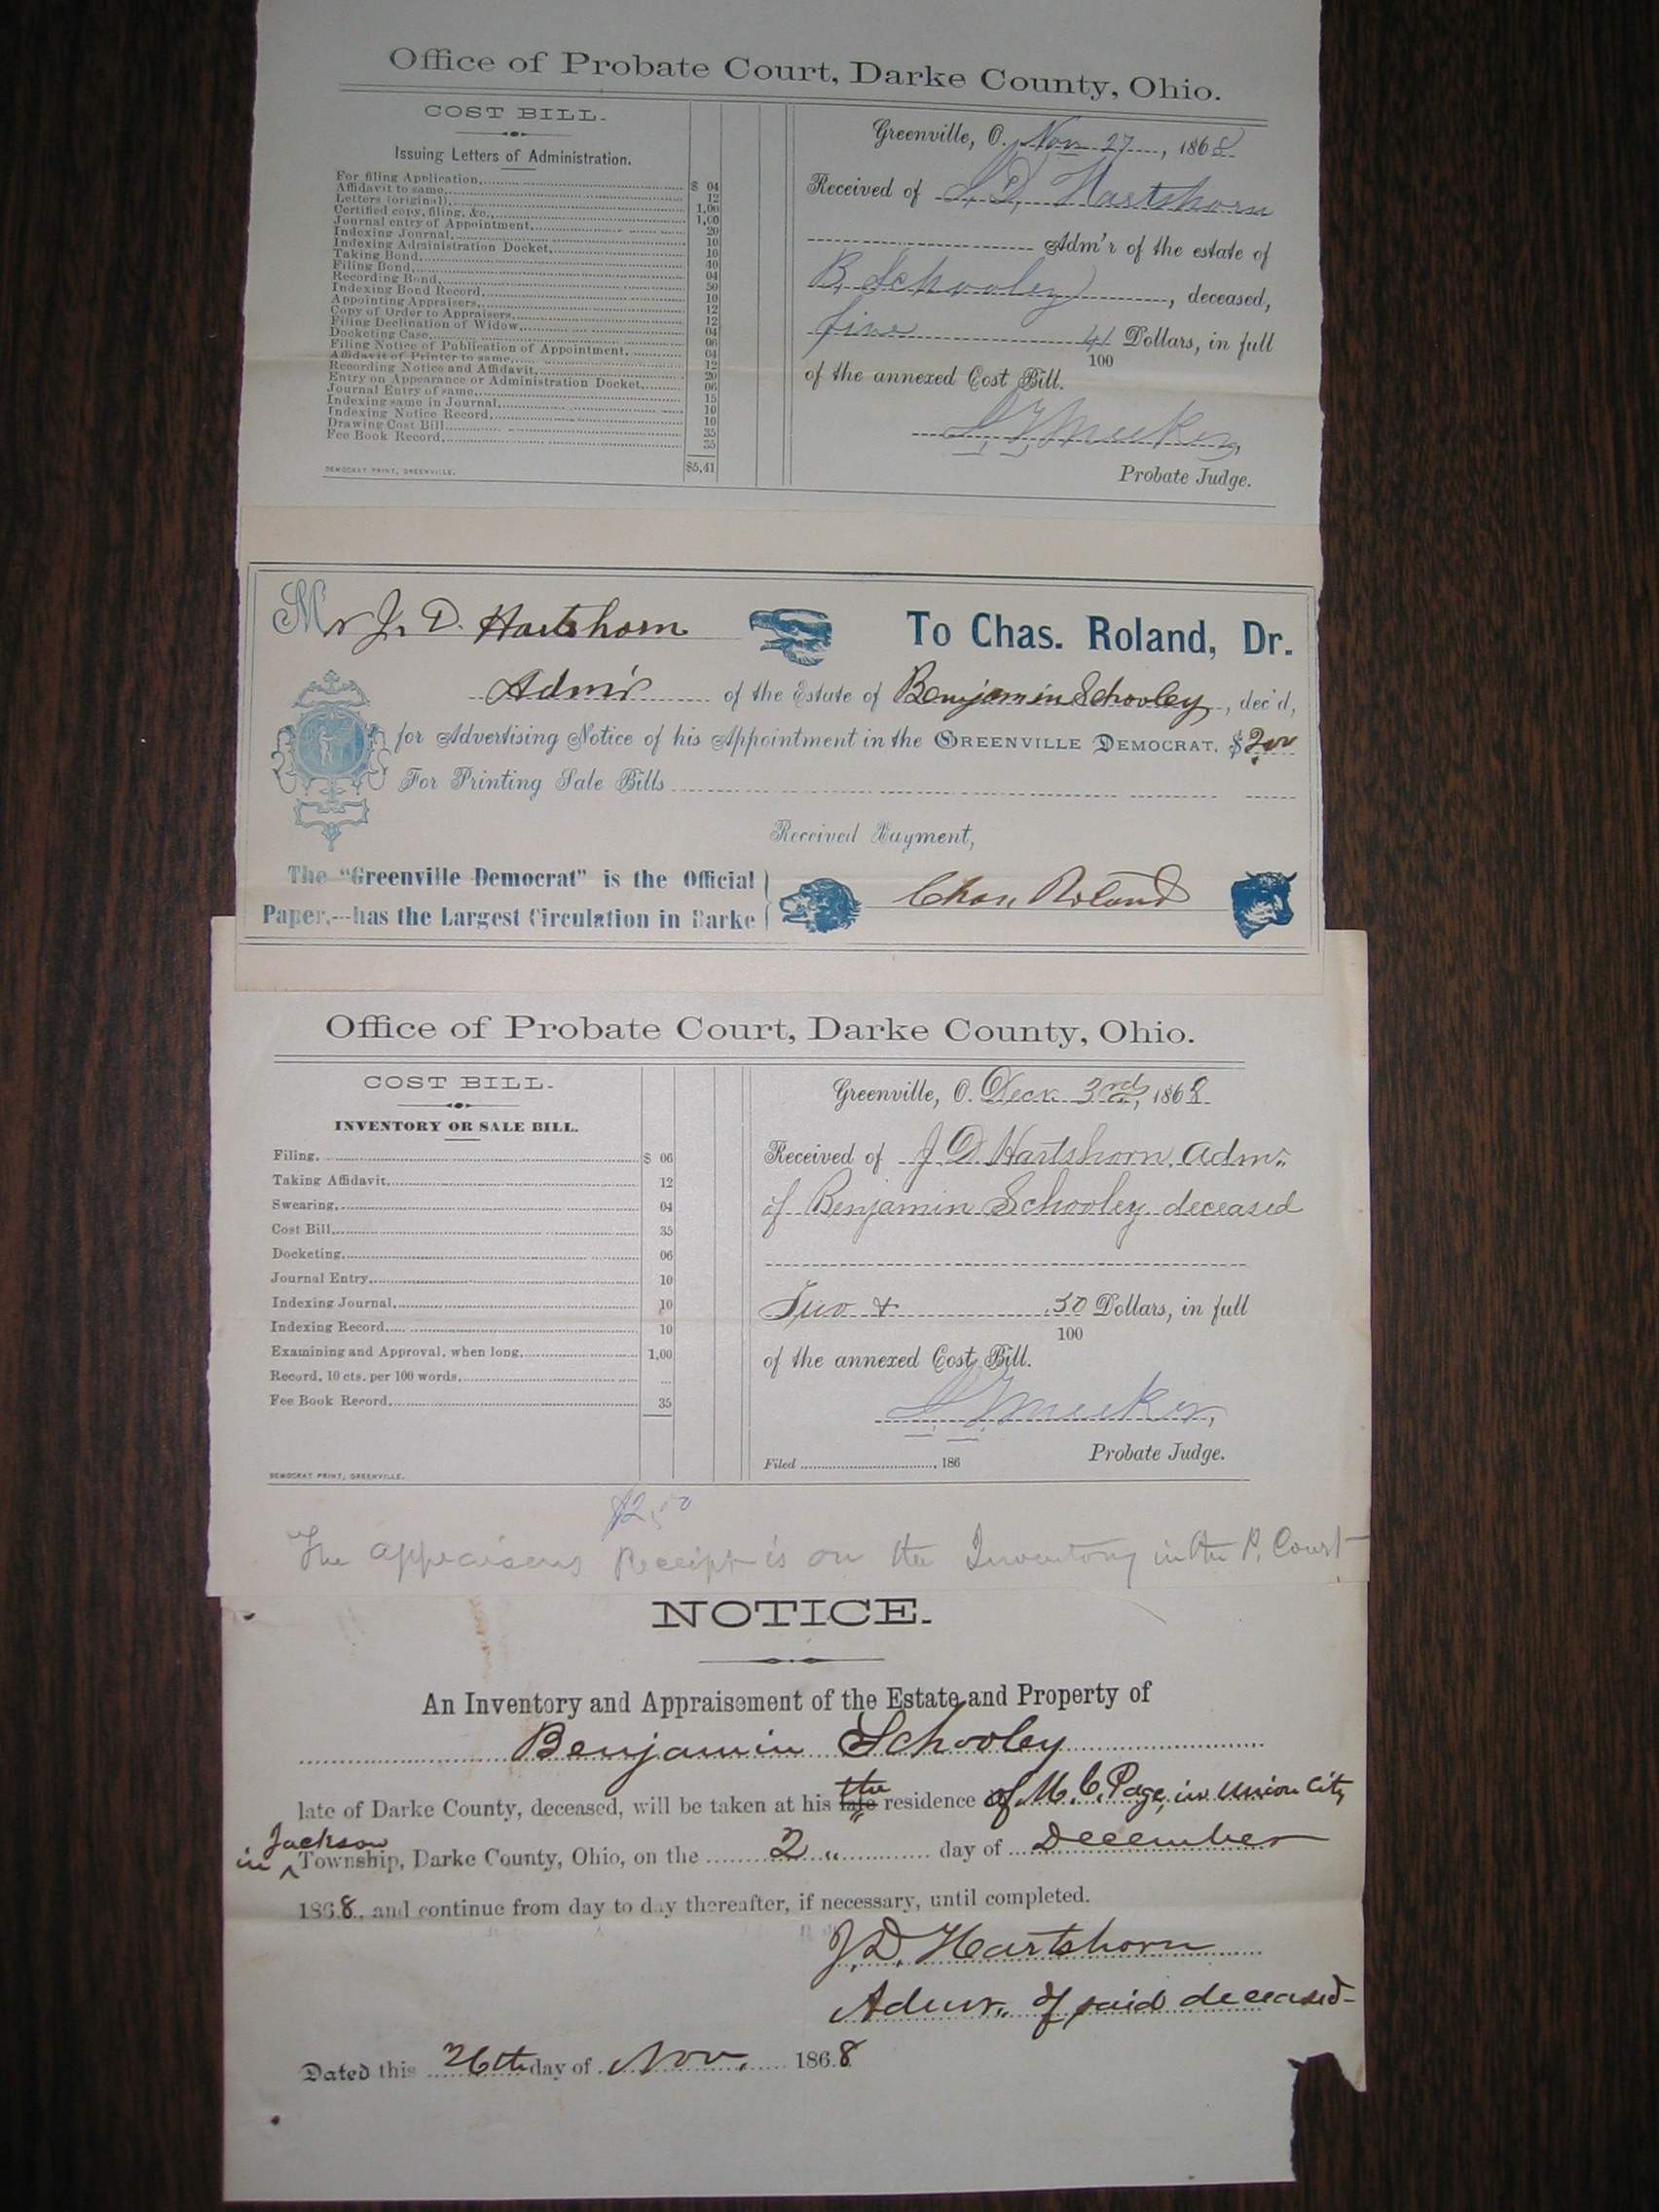 Office of Probate Court, Darke County, Ohio.
COST BILL.
Issuing Letters of Administration.
For filing Application, $ 04
Affidavit to same, 12
Letters (original), 1,00
Certified copy, filing, &c., 1,00
Journal entry of Appointment, 20
Indexing Journal, 10
Indexing Administration Docket, 10
Taking Bond, 40
Filing Bond, 04
Recording Bond, 50
Indexing Bond Record, 10
Appointing Appraisers, 12
Copy of Order to Appraisers, 12
Filing Declination of Widow, 04
Docketing Case, 06
Filing Notice of Publication of Appointment, 04
Affidavit of Printer to same, 12
Recording Notice and Affidavit, 20
Entry on Appearance or Administration Docket, 06
Journal Entry of same, 15
Indexing same in Journal, 10
Indexing Notice Record, 10
Drawing Cost Bill, 35
Fee Book Record, 35
$5,41
DEMOCRAT PRINT, GREENVILLE.
Greenville, O. Nov 27, 1868
Received of J. D. Hartshorn
Adm'r of the estate of
B. Schooley, deceased,
five 41 Dollars, in full
100
of the annexed Cost Bill.
Meeker,
Probate Judge.
Mr J. D. Hartshorn To Chas. Roland, Dr.
Adm'r of the Estate of Benjamin Schooley, dec'd,
for Advertising Notice of his Appointment in the GREENVILLE DEMOCRAT, $2,00
For Printing Sale Bills
Received Payment,
The "Greenville Democrat" is the Official
Paper,--has the Largest Circulation in Darke
Chas. Roland
Office of Probate Court, Darke County, Ohio.
COST BILL.
INVENTORY OR SALE BILL.
Filing, $ 06
Taking Affidavit, 12
Swearing, 04
Cost Bill, 35
Docketing, 06
Journal Entry, 10
Indexing Journal, 10
Indexing Record, 10
Examining and Approval, when long, 1,00
Record, 10 cts. per 100 words, ...
Fee Book Record, 35
DEMOCRAT PRINT, GREENVILLE.
Greenville, O. Dec. 3rd, 1868
Received of J D Hartshorn, Adm.
of Benjamin Schooley deceased
Two & .50 Dollars, in full
100
of the annexed Cost Bill.
Meeker,
Probate Judge.
Filed , 186
$2,50
The appraisers Receipt is on the Inventory in the P. Court
NOTICE.
An Inventory and Appraisement of the Estate and Property of
Benjamin Schooley
late of Darke County, deceased, will be taken at his late the residence of M. C. Page, in Union City
in Jackson Township, Darke County, Ohio, on the 2 " day of December
1868., and continue from day to day thereafter, if necessary, until completed.
J. D. Hartshorn
Admr. of said deceased-
Dated this 26th day of Nov. 1868